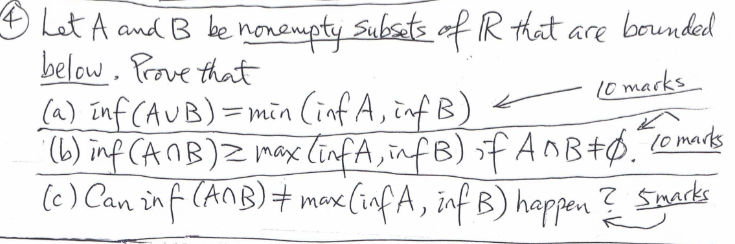 ④ Let A and B be nonempty subsets of ℝ that are bounded
below. Prove that
(a) inf(A∪B) = min(inf A, inf B) ← 10 marks
(b) inf(A∩B) ≥ max(inf A, inf B) if A∩B ≠ ∅. 10 marks
(c) Can inf(A∩B) ≠ max(inf A, inf B) happen? 5 marks